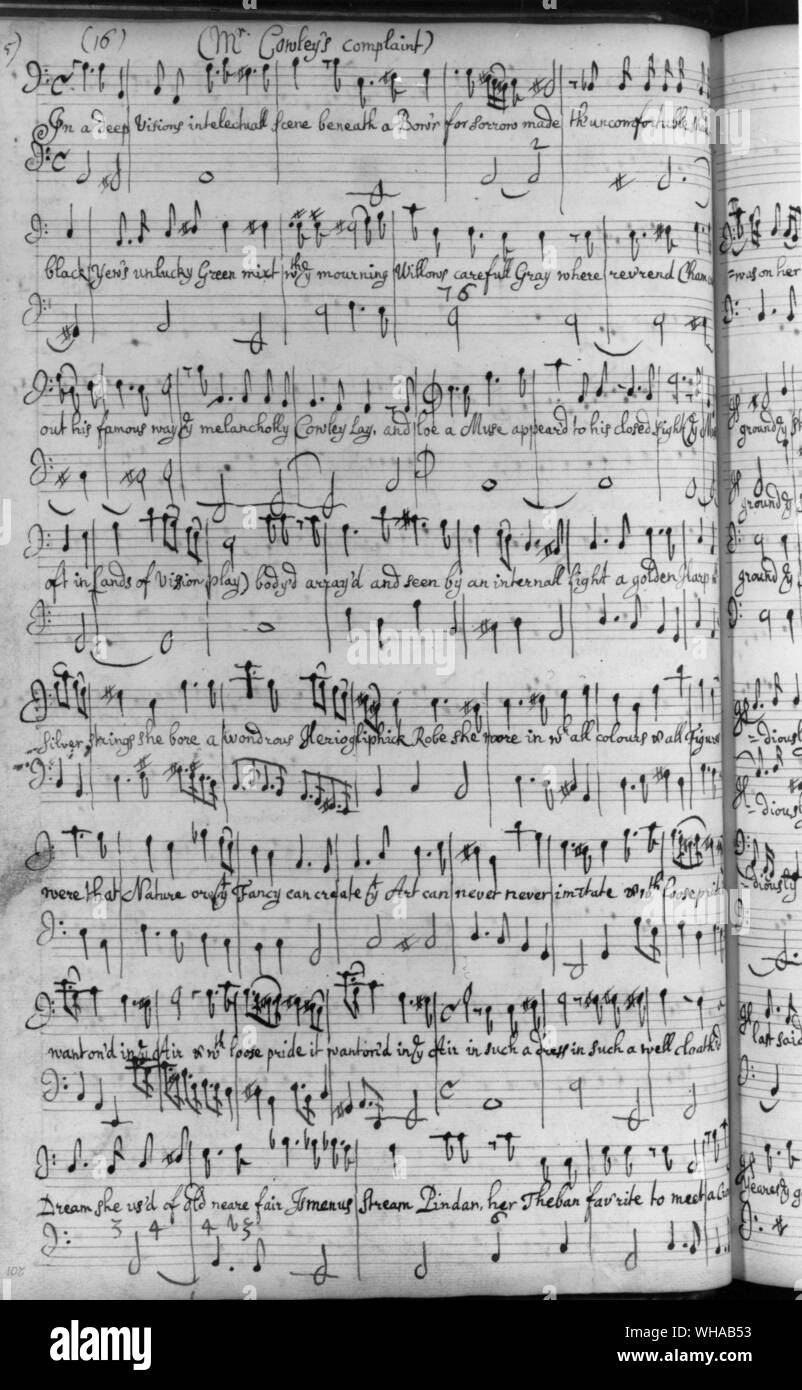 (16) (Mr. Cowley's complaint)
In a deep Visions intelectuall scene beneath a Bow'r for sorrow made th' uncomfortable
2
black Yew's unlucky Green mixt wth ye mourning Willows carefull Gray where rev'rend Cham
76
out his famous way ye melancholly Cowley Lay, and loe a Muse appear'd to his closed sight (ye Mu
oft in Lands of Vision play) body'd array'd and seen by an internall Light a golden Harp
Silver strings she bore a wondrous Herioglyphick Robe she wore in wch all colours & all Figur
were that Nature or ye Fancy can create ye Art can never never imitate & wth loose prid
wanton'd in ye Air & wth loose pride it wanton'd in ye Air in such a dress in such a well cloath'd
Dream she us'd of old neare fair Ismenus Stream Pindar, her Theban fav'rite to meet a
3 4 4 3 6
=was on her
ground ye
ground ye
ground ye
=diously
=diously
=diously
last said
yeares ye g
102
alamy
alamy
alamy
alamy
Image ID: WHAB53
www.alamy.com